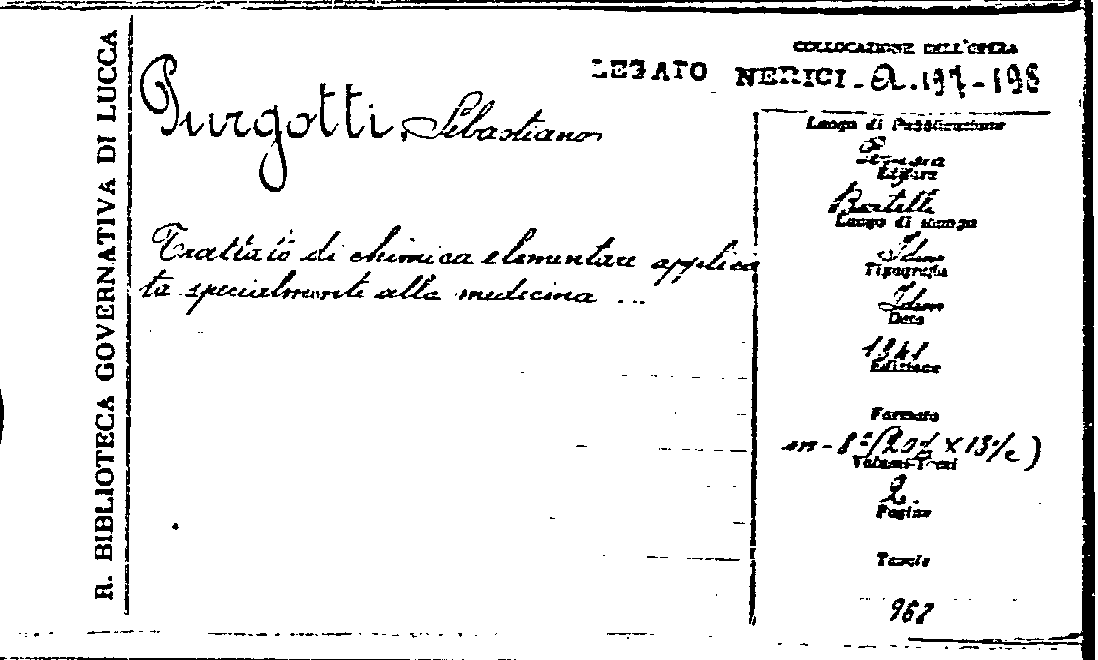 R. BIBLIOTECA GOVERNATIVA DI LUCCA
COLLOCAZIONE DELL'OPERA
LEGATO NERICI - A. 197-198
Purgotti, Sebastiano
Trattato di chimica elementare applica
ta specialmente alla medicina ...
Luogo di Pubblicazione
Editore
Bartelli
Luogo di stampa
Idem
Tipografia
Idem
Data
1841
Edizione
Formato
in-8º (20% x 13%)
Volumi-Tomi
2.
Pagine
Tavole
962